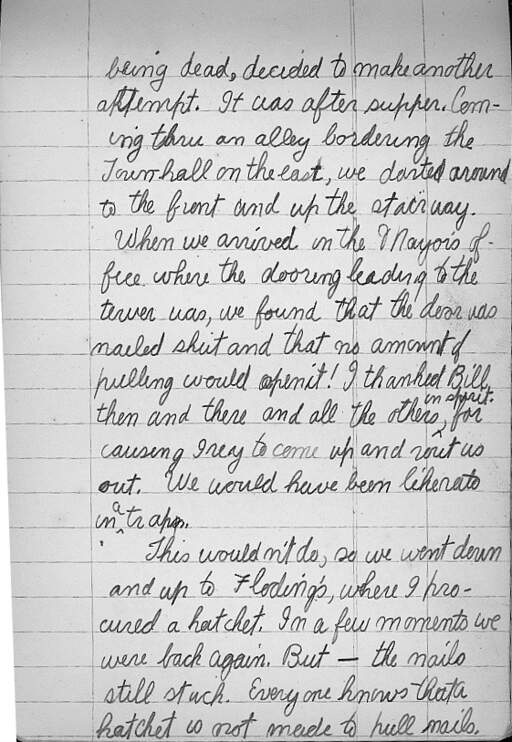 being dead, decided to make another
attempt. It was after supper. Com-
ing thru an alley bordering the
Town hall on the east, we darted around
to the front and up the stairway.
When we arrived in the Mayors of-
fice where the dooring leading to the
tower was, we found that the door was
nailed shut and that no amount of
pulling would open it! I thanked Bill,
in spirit.
then and there and all the others, for
causing Irey to come up and rout us
out. We would have been like rats
in a traps.
This wouldn't do, so we went down
and up to Floding's, where I pro-
cured a hatchet. In a few moments we
were back again. But — the nails
still stuck. Everyone knows that a
hatchet is not made to pull nails.